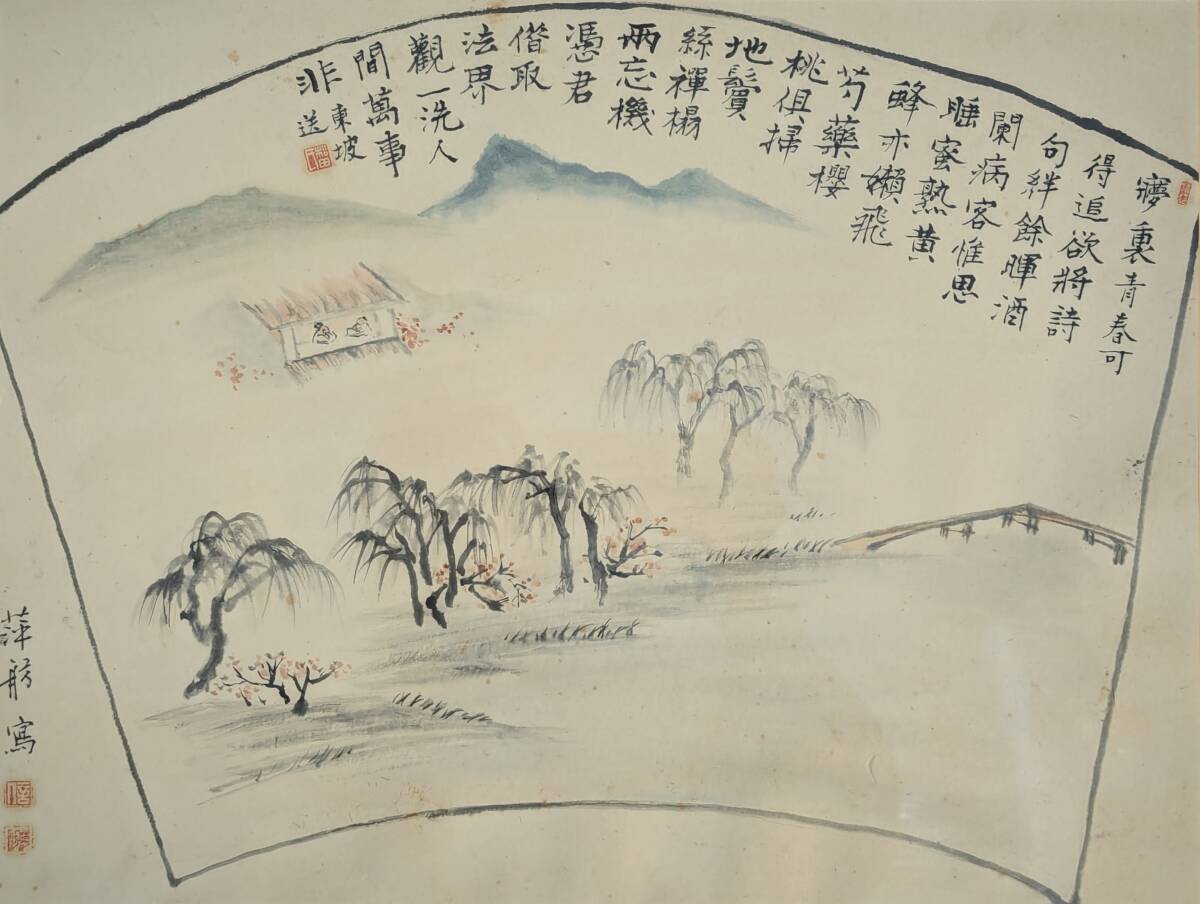 夢裏青春可
得追欲將詩
句絆餘暉酒
闌病客惟思
睡蜜熟黄
蜂亦嬾飛
芍藥櫻
桃俱掃
地鬢
絲禪榻
兩忘機
憑君
借取
法界
觀一洗人
間萬事
非
東坡
送
萍舫寫